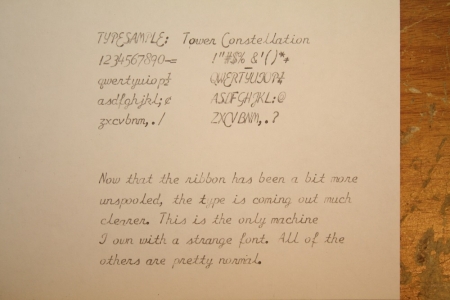 TYPESAMPLE: Tower Constellation
1234567890-= !"#$%_&'()*+
qwertyuiop½ QWERTYUIOP¼
asdfghjkl;¢ ASDFGHJKL:@
zxcvbnm,./ ZXCVBNM,.?
Now that the ribbon has been a bit more
unspooled, the type is coming out much
clearer. This is the only machine
I own with a strange font. All of the
others are pretty normal.